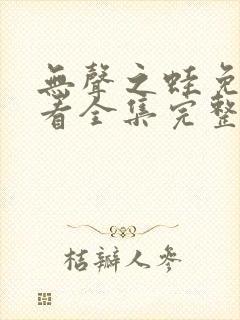 無聲之蛙免
看全集完整
桔瓣人參